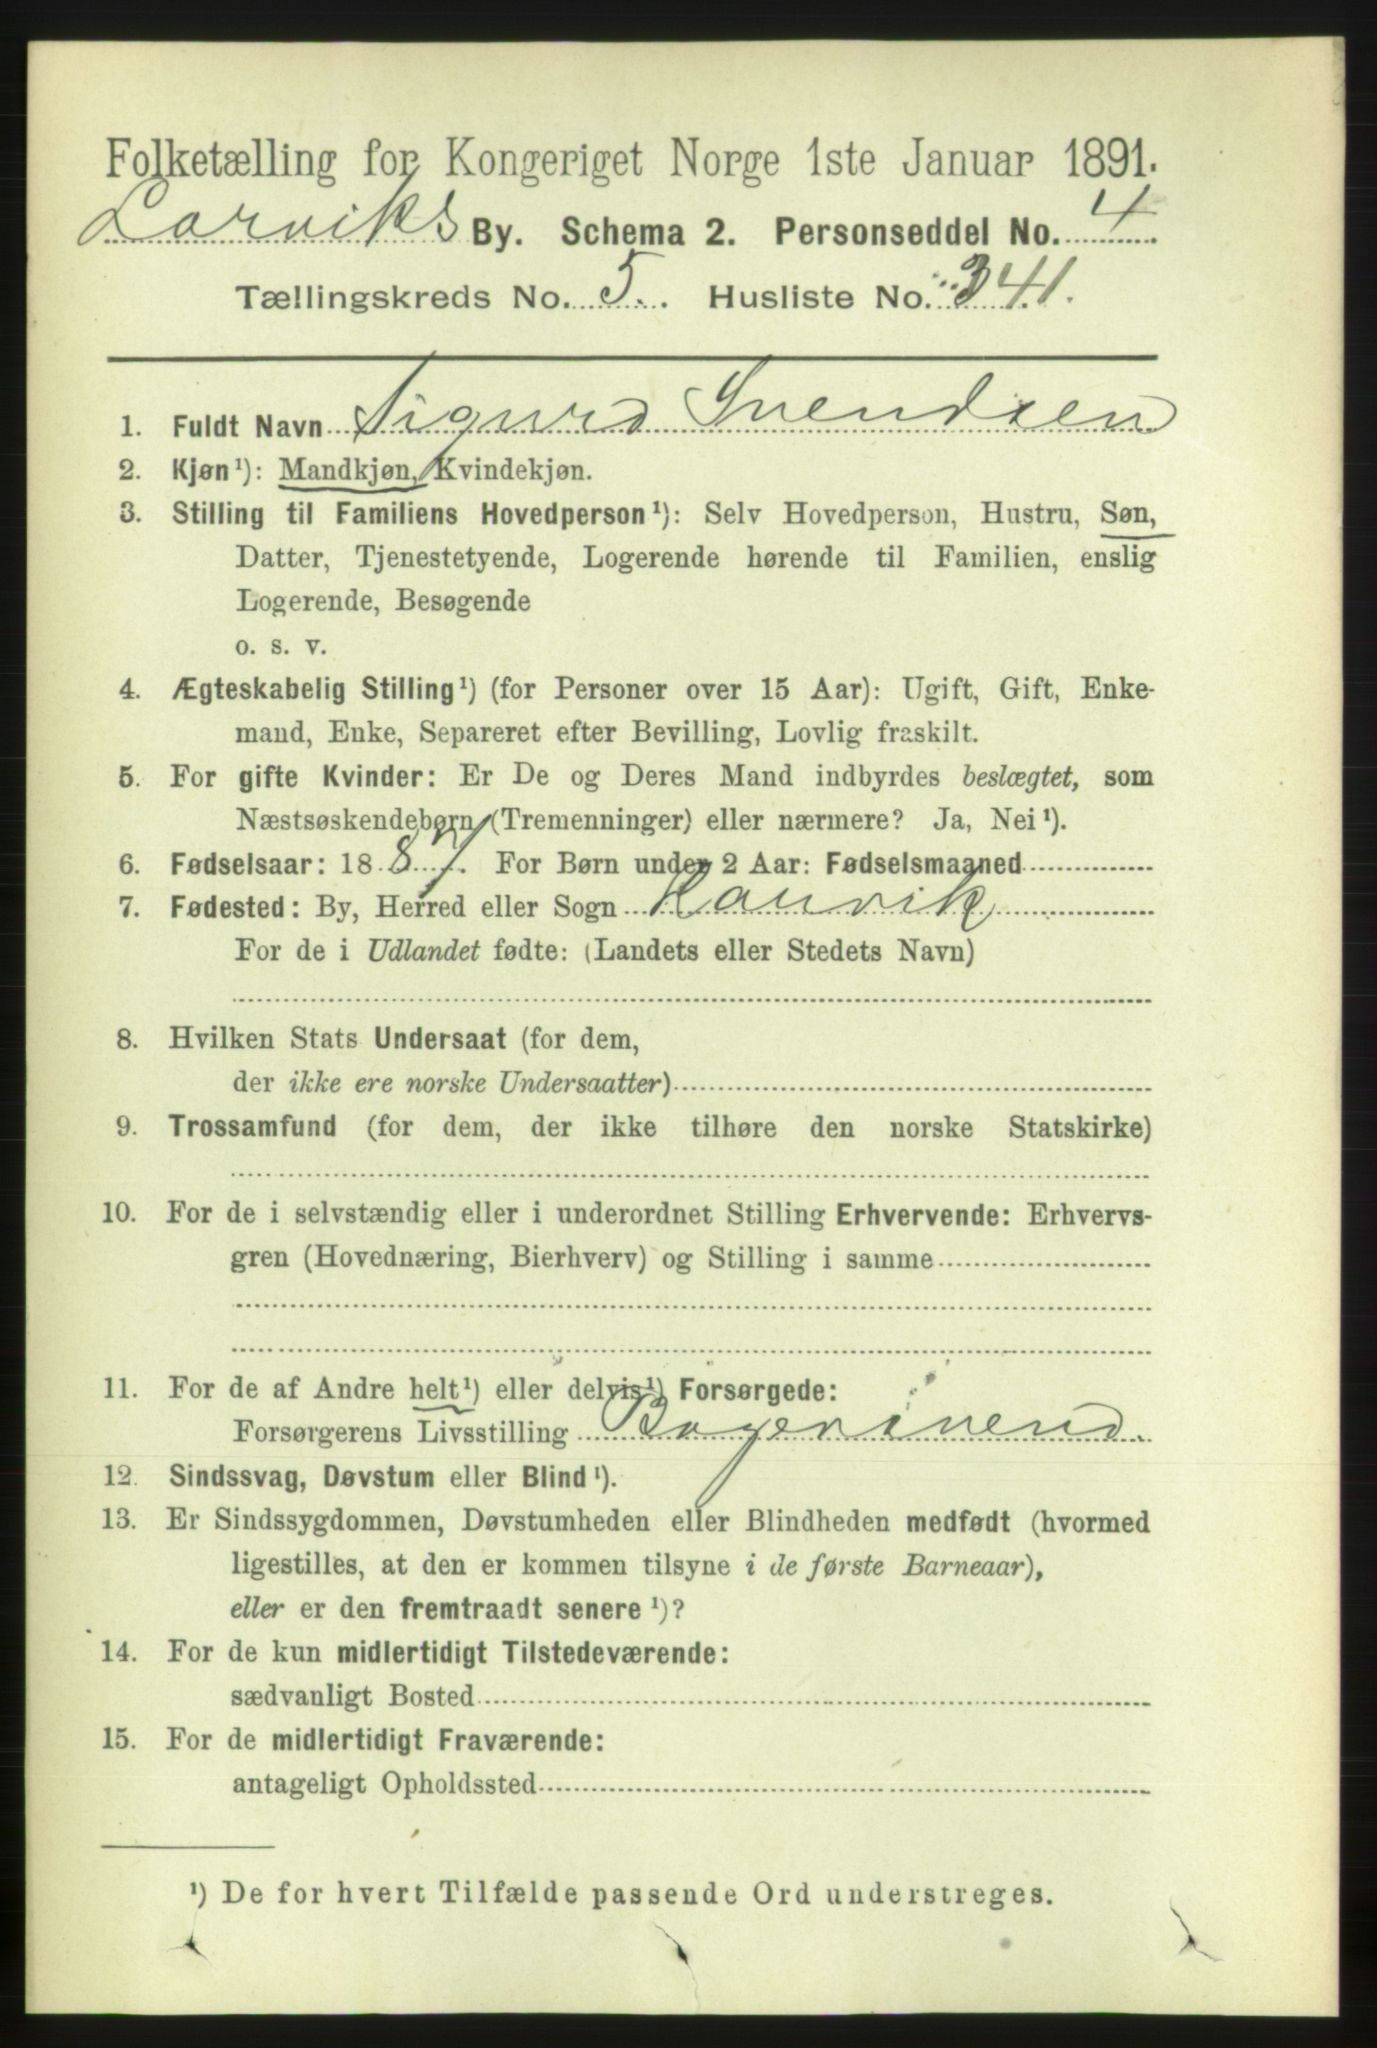 Folketælling for Kongeriget Norge 1ste Januar 1891.
Larviks By. Schema 2. Personseddel No. 4
Tællingskreds No. 5. Husliste No. 341.
1. Fuldt Navn Sigurd Svendsen
2. Kjøn¹): Mandkjøn, Kvindekjøn.
3. Stilling til Familiens Hovedperson¹): Selv Hovedperson, Hustru, Søn,
Datter, Tjenestetyende, Logerende hørende til Familien, enslig
Logerende, Besøgende
o. s. v.
4. Ægteskabelig Stilling¹) (for Personer over 15 Aar): Ugift, Gift, Enke-
mand, Enke, Separeret efter Bevilling, Lovlig fraskilt.
5. For gifte Kvinder: Er De og Deres Mand indbyrdes beslægtet, som
Næstsøskendebørn (Tremenninger) eller nærmere? Ja, Nei¹).
6. Fødselsaar: 1887. For Børn under 2 Aar: Fødselsmaaned
7. Fødested: By, Herred eller Sogn
For de i Udlandet fødte: (Landets eller Stedets Navn)
8. Hvilken Stats Undersaat (for dem,
der ikke ere norske Undersaatter)
9. Trossamfund (for dem, der ikke tilhøre den norske Statskirke)
10. For de i selvstændig eller i underordnet Stilling Erhvervende: Erhvervs-
gren (Hovednæring, Bierhverv) og Stilling i samme
11. For de af Andre helt¹) eller delvis¹) Forsørgede:
Forsørgerens Livsstilling Bagersvend.
12. Sindssvag, Døvstum eller Blind¹).
13. Er Sindssygdommen, Døvstumheden eller Blindheden medfødt (hvormed
ligestilles, at den er kommen tilsyne i de første Barneaar),
eller er den fremtraadt senere¹)?
14. For de kun midlertidigt Tilstedeværende:
sædvanligt Bosted
15. For de midlertidigt Fraværende:
antageligt Opholdssted
¹) De for hvert Tilfælde passende Ord understreges.